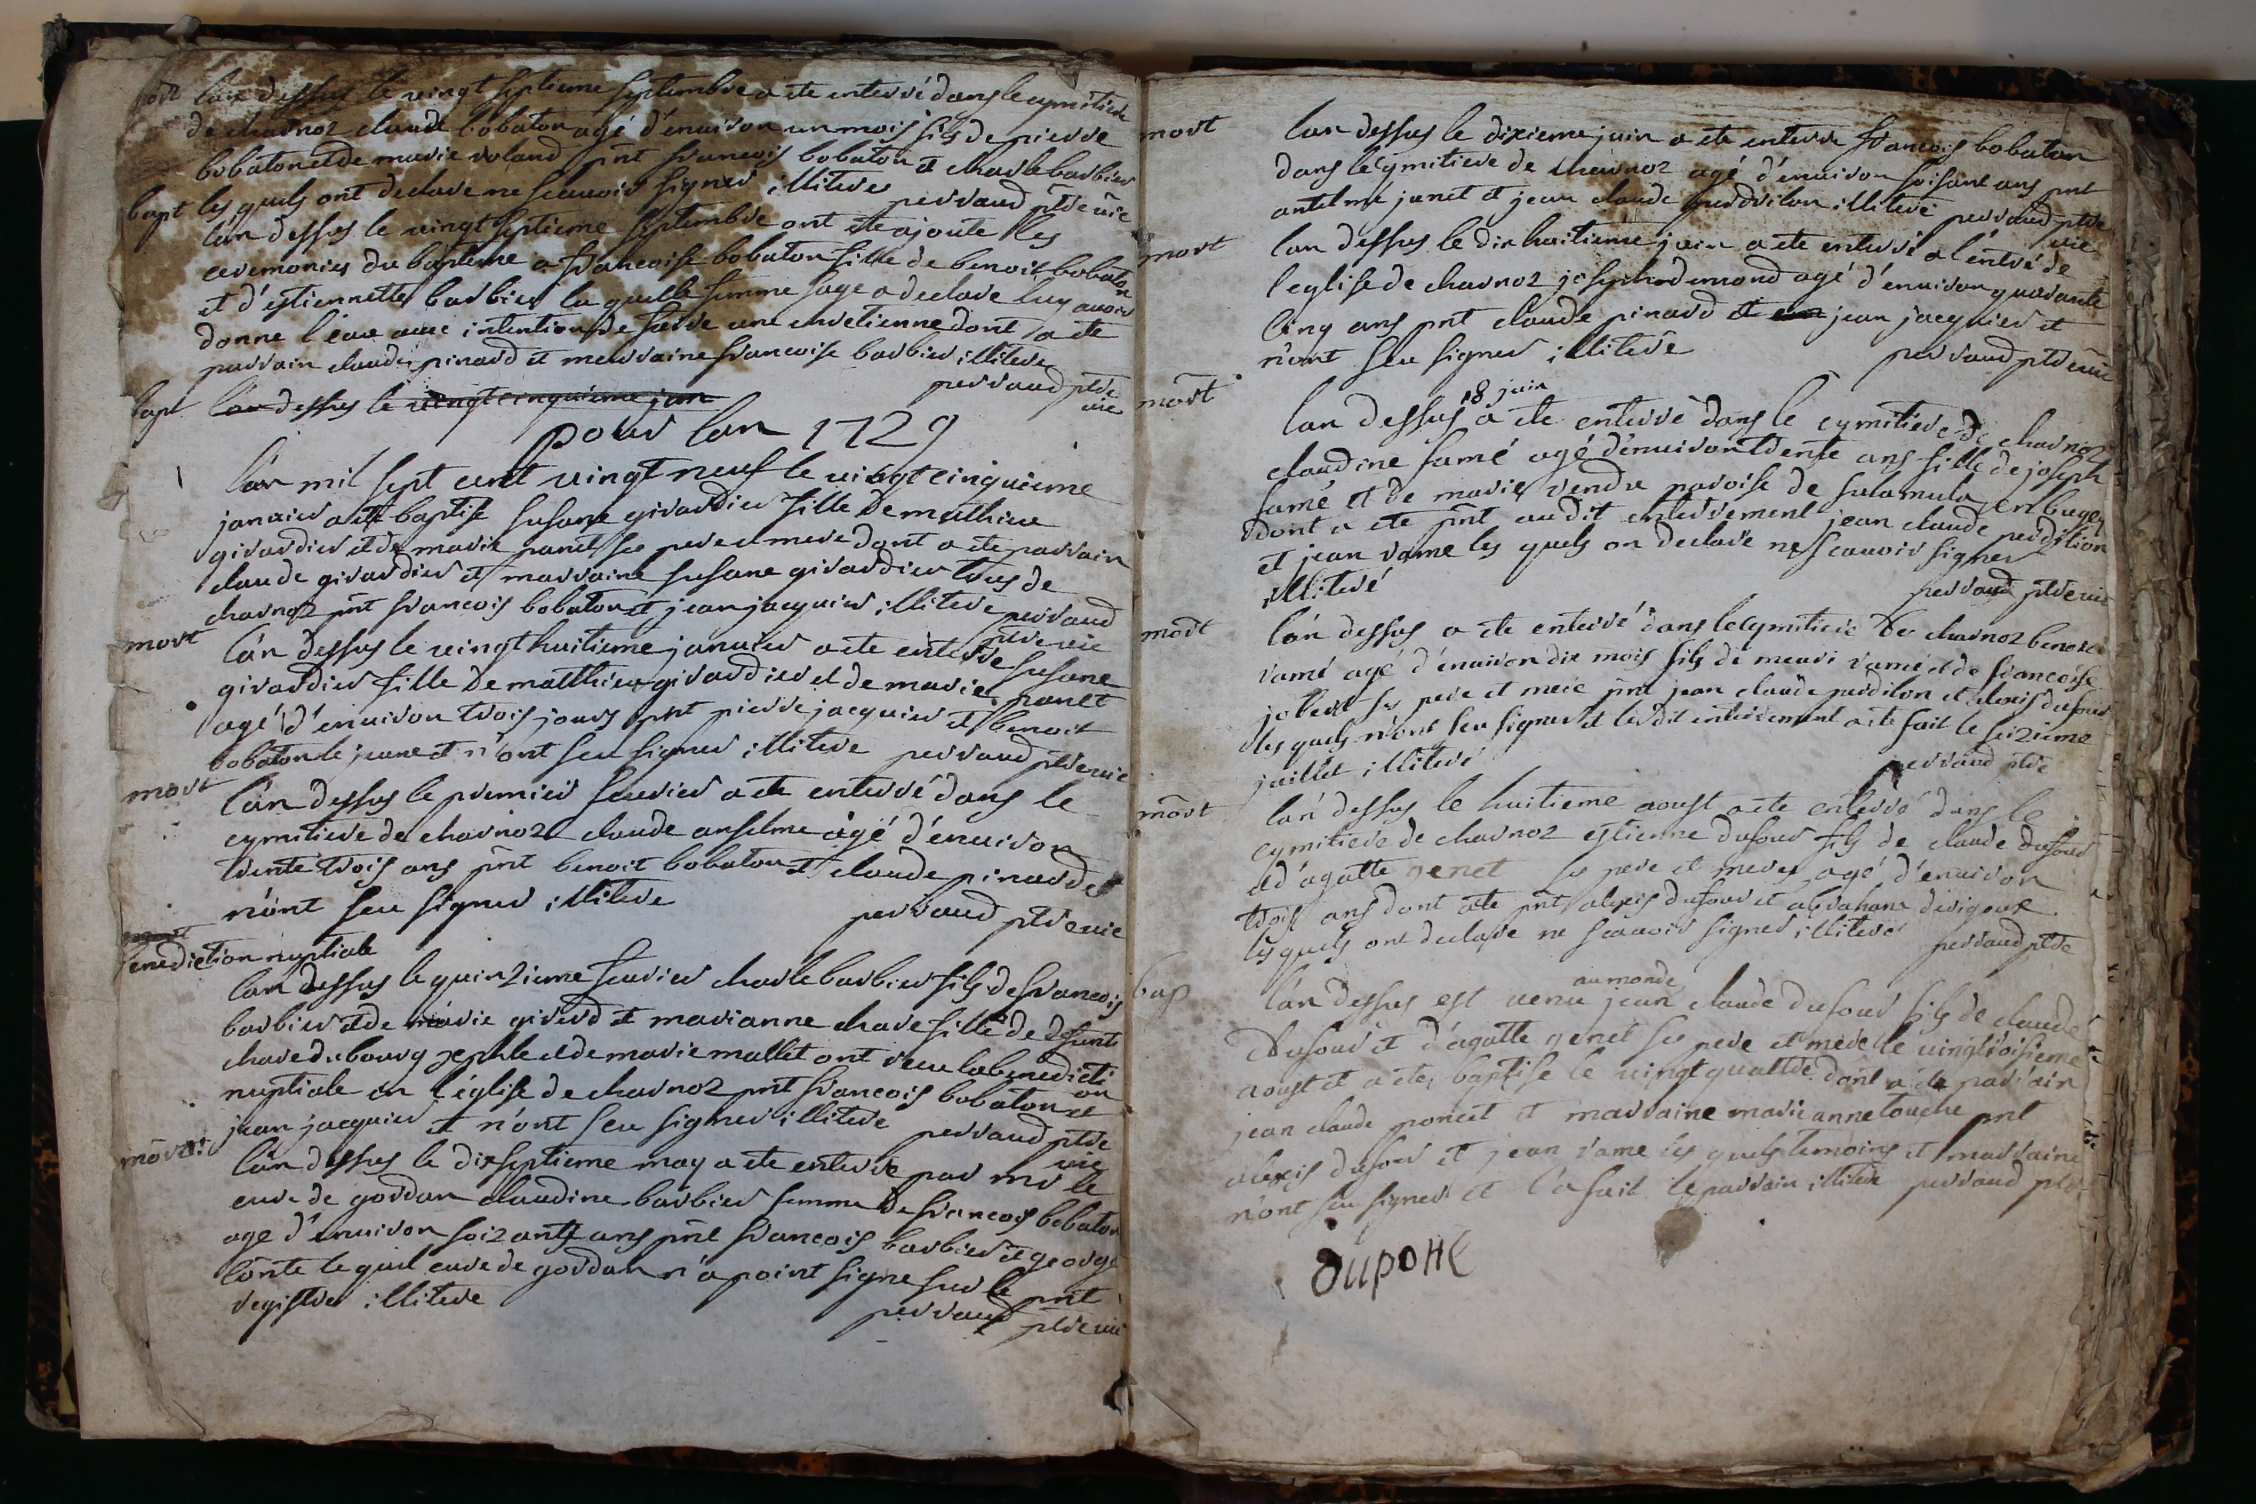 mort lan dessus le vingt septieme septembre a ete enterré dans le cymitiere
de charnoz claude bobaton agé d'enuiron un mois fils de pierre
bobaton et de marie roland pnt francois bobaton et charle barbier
les quels ont declare ne scauoir signer illitere perraud ptre vic
bapt lan dessus le vingt septieme septembre ont ete ajoute les
ceremonies du bapteme a francoise bobaton fille de benoit bobaton
et d'estiennette barbier la quelle femme sage a declare luy auoir
donne l'eau auec intention de faire une chretienne dont a ete
parrain claude pinard et marraine francoise barbier illitere
perraud ptre
vic
bapt lan dessus le vingt cinquieme jan
pour lan 1729
1 lan mil sept cent vingt neuf le vingt cinquieme
januier a ete baptise susane girardier fille de mathieu
girardier et de marie panet ses pere et mere dont a ete parrain
claude girardier et marraine susane girardier tous de
charnoz pnt francois bobaton et jean jacquier illitere perraud
ptre vic
mort lan dessus le vingt huitieme januier a ete enterre susane
girardier fille de matthieu girardier et de marie panet
agé d'enuiron trois jours pnt pierre jacquier et benoit
bobaton le jeune et n'ont seu signer illitere perraud ptre vic
mort lan dessus le premier feurier a ete enterré dans le
cymitiere de charnoz claude anselme agé d'enuiron
trente trois ans pnt benoit bobaton et claude pinard et
n'ont seu signer illitere perraud ptre vic
benediction nuptiale
lan dessus le quinzieme feurier charle barbier fils de francois
barbier et de marie girerd et marianne chare fille de defunt
chare du bourg et de marie mallet ont receu la benedicti
on
nuptiale en l'église de charnoz pnt francois bobaton et
jean jacquier et n'ont seu signer illitere perraud ptre
vic
mort lan dessus le dix septieme may a ete enterre par mr le
cure de gordan claudine barbier femme de francois bobaton
age d'enuiron soizante ans pnt francois barbier et george
conte le quel cure de gordan n'a point signe sur le pnt
registre illitere perraud ptre vic
mort lan dessus le dixieme juin a ete enterre francois bobaton
dans le cymitiere de charnoz agé d'enuiron soisant ans pnt
antelme janet et jean claude perdrilon illitere perraud ptre
vic
mort lan dessus le dix huitieme juin a ete enterré a l'entré de
l'eglise de charnoz joseph demond agé d'enuiron quarante
cinq ans pnt claude pinard et jean jacquier et
n'ont seu signer illitere perraud ptre vic
18 juin
mort lan dessus a ete enterré dans le cymitiere de charnoz
claudine famé agé d'enuiron trente ans fille de joseph
famé et de marie vendu paroise de en bugey
dont a ete pnt audit enterrement jean claude perdrilion
et jean rame les quels on declare ne scauoir signer
illiteré perraud ptre vic
mort lan dessus a ete enterré dans le cymitiere de charnoz benoit
ramé agé d'enuiron dix mois fils de ramé et de francoise
jobert ses pere et mere pnt jean claude perdrilon et alexis dufour
les quels n'ont seu signer et le dit enterrement a ete fait le seizieme
juillet illiteré perraud ptre
mort lan dessus le huitieme aoust a ete enterré dans le
cymitiere de charnoz estienne dufour fils de claude dufour
et d'agatte genet ses pere et mere agé d'enuiron
trois ans dont ete pnt alexis dufour et abraham
les quels ont declare ne scauoir signer illitere perraud ptre
au monde
bap lan dessus est venu jean claude dufour fils de claude
dufour et d'agatte genet ses pere et mere le vingt troisieme
aoust et a ete baptise le vingt quattre dont a ete parrain
jean claude poncet et marraine marie anne touche pnt
alexis dufour et jean rame les quels temoins et marraine
n'ont seu signer et l'a fait le parrain illitere perraud ptre